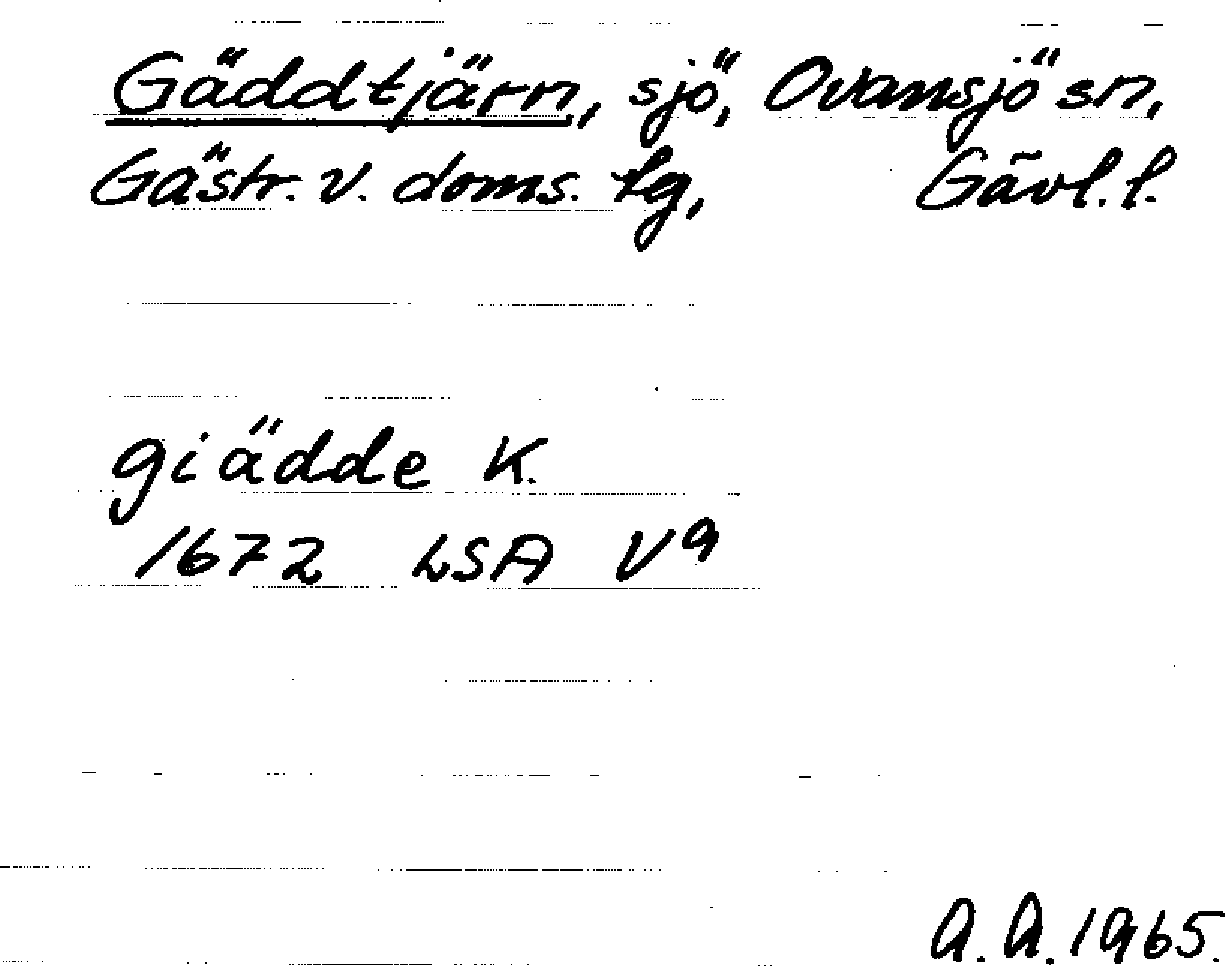 Gäddtjärn, sjö, Ovansjö sn,
Gästr. v. doms. tg, Gävl. l.
giädde K.
1672 LSA V9
A. A. 1965.